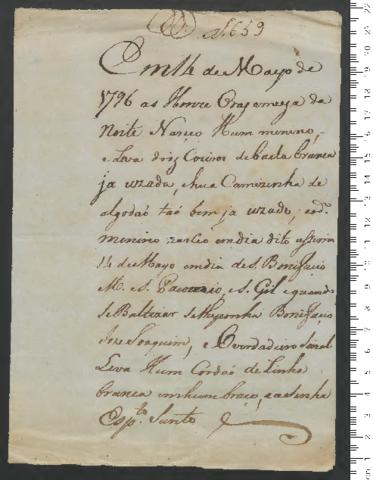 a f. 659
Em 14 de Mayo de
1796 as Honze Oras emeya da
noite Naseo Hum menino,
e Leva dois Coeiros de baeta branca
ja uzada, e hua Camizinha de
algodaõ taõ bem ja uzado, eod.
menino nasceo em dia dito assima
14 de Mayo em dia de S. Bonifacio
M. e S. Pacomio, e S. Gil e quando
se Baltizar se lhe ponha Bonifacio
Joze Joaquim, e O verdadeiro sinal
Leva Hum Cordaõ de Linha
branca em hum braço,
Esp.to Santo